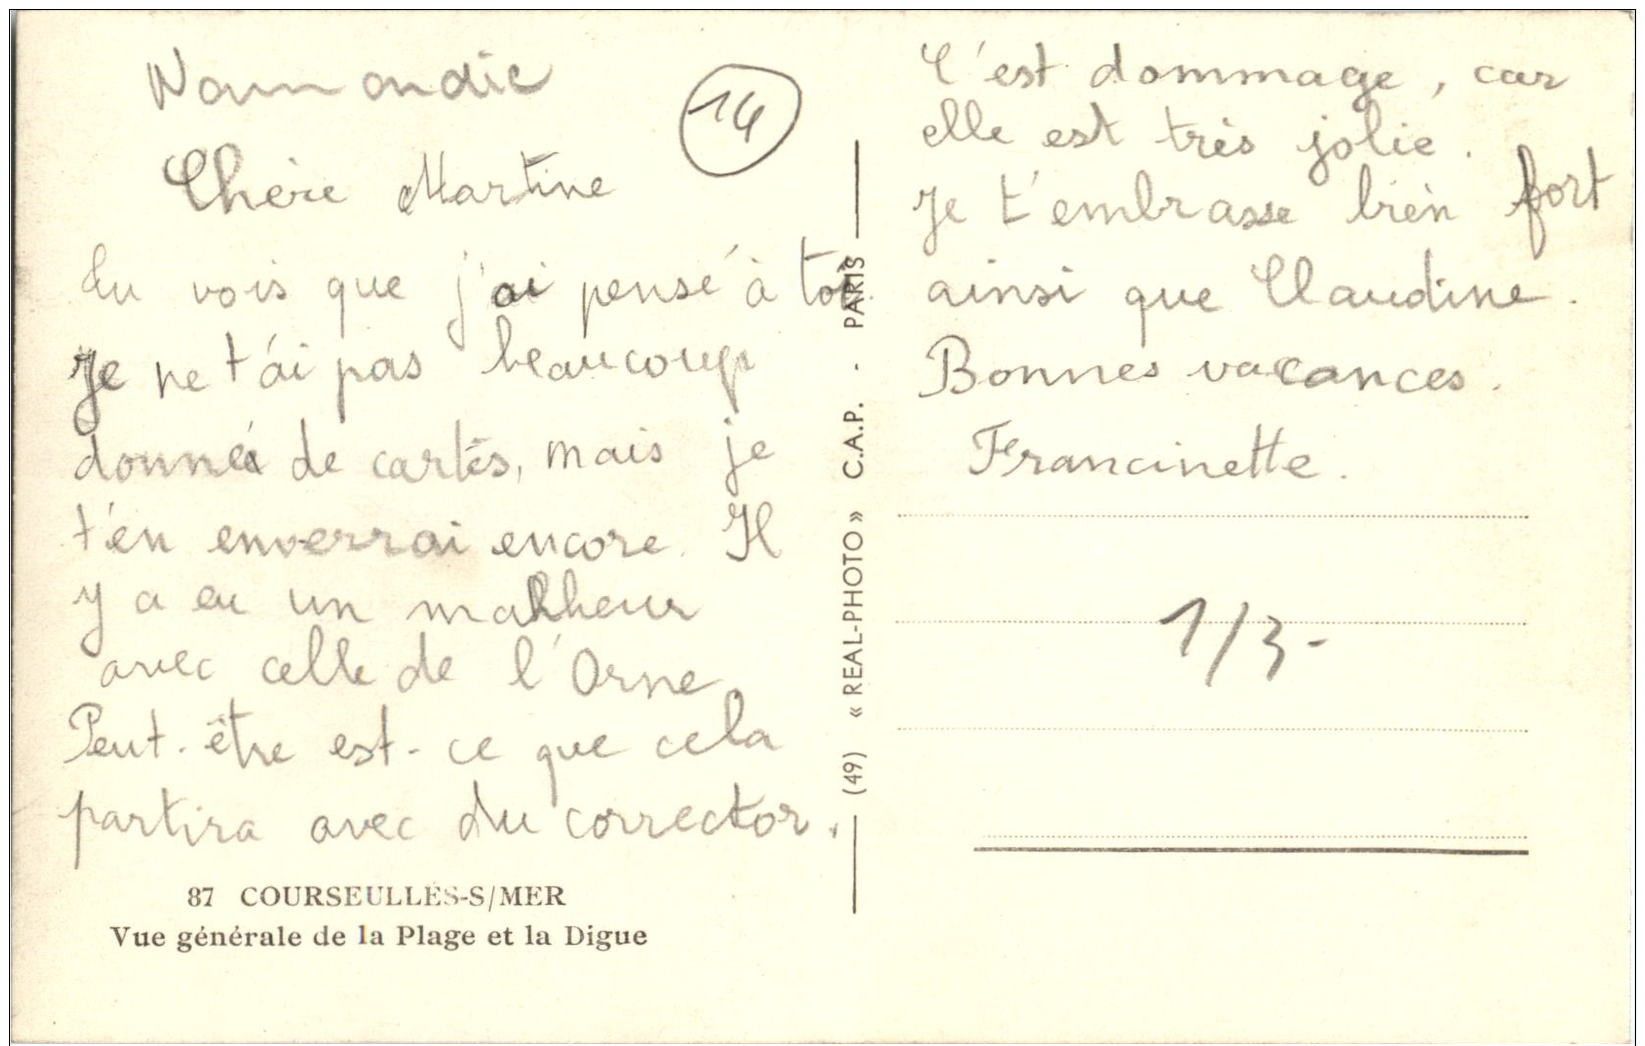 Normandie
14
Chère Martine
Tu vois que j'ai pensé à toi.
Je ne t'ai pas beaucoup
donné de cartes, mais je
t'en enverrai encore. Il
y a eu un malheur
avec celle de l'Orne.
Peut-être est-ce que cela
partira avec du corrector.
87 COURSEULLES-S/MER
Vue générale de la Plage et la Digue
(49) « REAL-PHOTO » C.A.P. - PARIS
C'est dommage, car
elle est très jolie.
Je t'embrasse bien fort
ainsi que Claudine.
Bonnes vacances.
Francinette.
1/3-